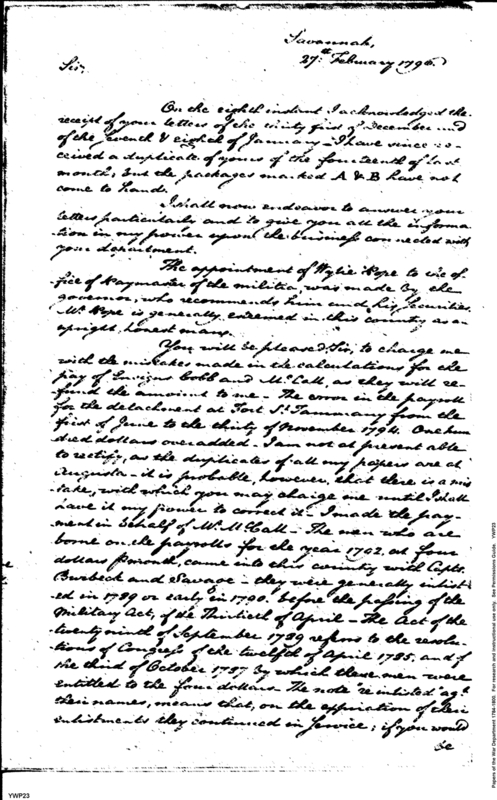 Savannah,
27th February 1796.
Sir,
On the eighth instant I acknowledged the
receipt of your letters of the thirty first of December and
of the seventh & eighth of January - I have since re-
ceived a duplicate of yours of the fourteenth of last
month, but the packages marked A & B have not
come to hand.
I shall now endeavor to answer your
letters particularly and to give you all the informa-
tion in my power upon the business connected with
your department.
The appointment of Wylie Pope to the of-
fice of Paymaster of the militia, was made by the
governor, who recommends him and his securities.
Mr. Pope is generally esteemed in this country as an
upright, honest man.
You will be pleased, Sir, to charge me
with the mistakes made in the calculations for the
pay of Ensigns Cobb and McCall, as they will re-
fund the amount to me - The error in the payroll
for the detachment at Fort St. Tammany from the
first of June to the thirty of November 1794. One hun
dred dollars overadded - I am not at present able
to rectify, as the duplicates of all my papers are at
Augusta - it is probable, however, that there is a mis
take, with which you may charge me until I shall
have it my power to correct it - I made the pay-
ment in behalf of Mr. McCall - The men who are
borne on the payrolls for the year 1792, at four
dollars month, came into this country with Capts.
Burbeck and Savage - they were generally inlist-
ed in 1789 or early in 1790. before the passing of the
Military Act, of the Thirtieth of April - The Act of the
twenty ninth of September 1789 refers to the resolu-
tions of Congress of the twelfth of April 1785, and of
the third of October 1787 by which these men were
entitled to the four dollars. The note "reinlisted" agt.
their names, means that, on the expiration of their
enlistments they continued in service; if you would
be
YWP23
Papers of the War Department 1784-1800. For research and instructional use only. See Permissions Guide. YWP23